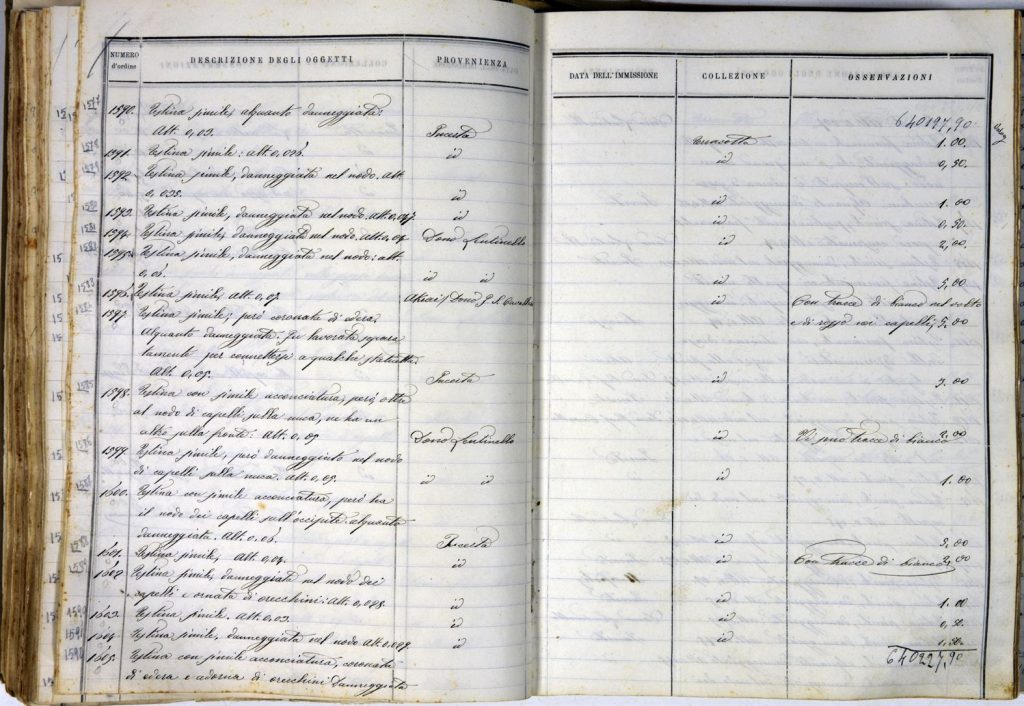 NUMERO d'ordine
DESCRIZIONE DEGLI OGGETTI
PROVENIENZA
DATA DELL'IMMISSIONE
COLLEZIONE
OSSERVAZIONI
640197,90
1590. Testina simile, alquanto danneggiata.
Alt. 0,03. Incerta Terracotta 1.00
1591. Testina simile: alt. 0,036 id id 0,50
1592. Testina simile, danneggiata nel nodo. Alt.
0,035. id id 1.00
1593. Testina simile, danneggiata nel nodo. Alt. 0,047 id id 0,50
1594. Testina simile, danneggiata nel nodo. Alt. 0,04 Dono id 2,00
1595. Testina simile, danneggiata nel nodo: alt.
0,06. id id 3,00
1596. Testina simile, Alt. 0,07. Dono id Con tracce di bianco nel volto
1597. Testina simile, però coronata di edera. e di rosso nei capelli, 5,00
Alquanto danneggiata. Fu lavorata separa
tamente per connettersi a qualche statuetta.
Alt. 0,05. Incerta id 3.00
1598. Testina con simile acconciatura, però oltre
al nodo di capelli sulla nuca, ne ha un
altro sulla fronte. Alt. 0,05 Dono id Vi sono tracce di bianco 2,00
1599. Testina simile, però danneggiata nel nodo
di capelli sulla nuca. Alt. 0,05. id id id 1.00
1600. Testina con simile acconciatura, però ha
il nodo dei capelli sull'occipite. Alquanto
danneggiata. Alt. 0.06. Incerta id 3,00
1601. Testina simile, Alt. 0,04. id id Con tracce di bianco, 2,00
1602. Testina simile, danneggiata nel nodo dei
capelli e ornata di orecchini: Alt. 0,048. id id 1.00
1603. Testina simile. Alt. 0,03. id id 0,50.
1604. Testina simile, danneggiata nel nodo Alt. 0.047. id id 1.50.
1605. Testina con simile acconciatura, coronata
di edera e adorna di orecchini Danneggiata
640227,90